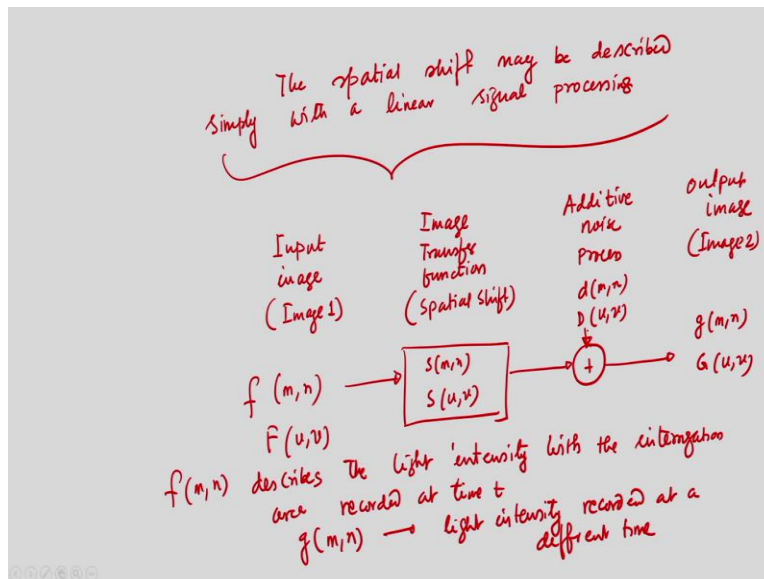 The spatial shift may be described
simply with a linear signal processing
Input
image
(Image 1)
Image
Transfer
function
(Spatial Shift)
Additive
noise
process
d(m,n)
D(u,v)
output
image
(Image 2)
f(m,n)
F(u,v)
S(m,n)
S(u,v)
+
g(m,n)
G(u,v)
f(m,n) describes the light intensity with the interrogation
area recorded at time t
g(m,n) → light intensity recorded at a
diffrent time